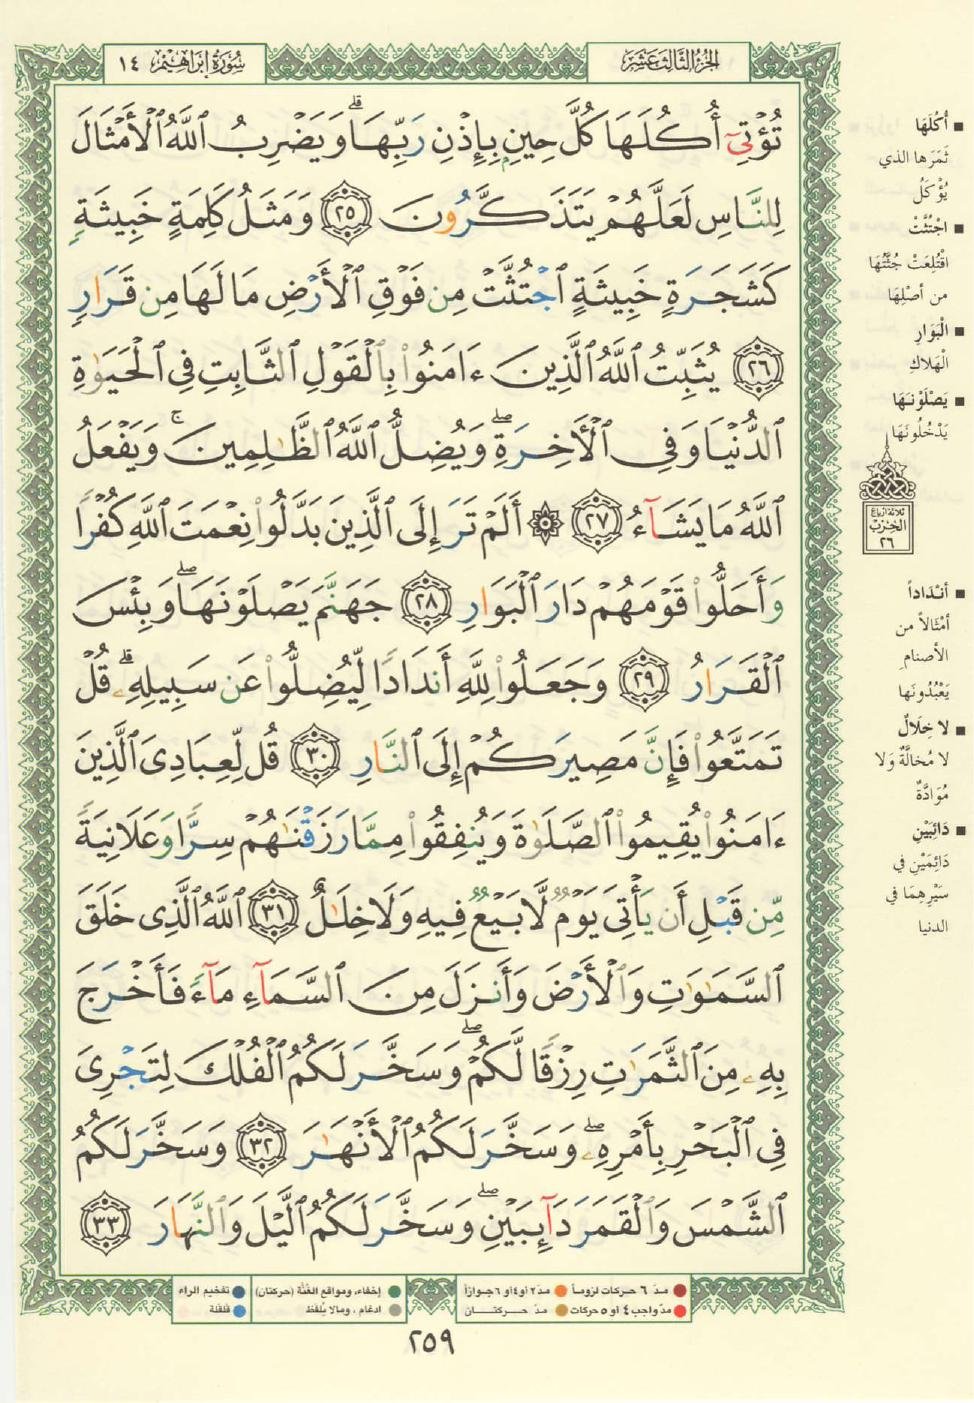 الجزء الثالث عشر
سورة إبراهيم ١٤
تُؤْتِىٓ أُكُلَهَا كُلَّ حِينٍۭ بِإِذْنِ رَبِّهَاۗ وَيَضْرِبُ ٱللَّهُ ٱلْأَمْثَالَ
لِلنَّاسِ لَعَلَّهُمْ يَتَذَكَّرُونَ ٢٥ وَمَثَلُ كَلِمَةٍ خَبِيثَةٍ
كَشَجَرَةٍ خَبِيثَةٍ ٱجْتُثَّتْ مِن فَوْقِ ٱلْأَرْضِ مَا لَهَا مِن قَرَارٍ
٢٦ يُثَبِّتُ ٱللَّهُ ٱلَّذِينَ ءَامَنُوا۟ بِٱلْقَوْلِ ٱلثَّابِتِ فِى ٱلْحَيَوٰةِ
ٱلدُّنْيَا وَفِى ٱلْأَخِرَةِۖ وَيُضِلُّ ٱللَّهُ ٱلظَّٰلِمِينَۚ وَيَفْعَلُ
ٱللَّهُ مَا يَشَآءُ ٢٧ ۞ أَلَمْ تَرَ إِلَى ٱلَّذِينَ بَدَّلُوا۟ نِعْمَتَ ٱللَّهِ كُفْرًا
وَأَحَلُّوا۟ قَوْمَهُمْ دَارَ ٱلْبَوَارِ ٢٨ جَهَنَّمَ يَصْلَوْنَهَاۖ وَبِئْسَ
ٱلْقَرَارُ ٢٩ وَجَعَلُوا۟ لِلَّهِ أَندَادًا لِّيُضِلُّوا۟ عَن سَبِيلِهِۦۗ قُلْ
تَمَتَّعُوا۟ فَإِنَّ مَصِيرَكُمْ إِلَى ٱلنَّارِ ٣٠ قُل لِّعِبَادِىَ ٱلَّذِينَ
ءَامَنُوا۟ يُقِيمُوا۟ ٱلصَّلَوٰةَ وَيُنفِقُوا۟ مِمَّا رَزَقْنَٰهُمْ سِرًّا وَعَلَانِيَةً
مِّن قَبْلِ أَن يَأْتِىَ يَوْمٌ لَّا بَيْعٌ فِيهِ وَلَا خِلَٰلٌ ٣١ ٱللَّهُ ٱلَّذِى خَلَقَ
ٱلسَّمَٰوَٰتِ وَٱلْأَرْضَ وَأَنزَلَ مِنَ ٱلسَّمَآءِ مَآءً فَأَخْرَجَ
بِهِۦ مِنَ ٱلثَّمَرَٰتِ رِزْقًا لَّكُمْۖ وَسَخَّرَ لَكُمُ ٱلْفُلْكَ لِتَجْرِىَ
فِى ٱلْبَحْرِ بِأَمْرِهِۦۖ وَسَخَّرَ لَكُمُ ٱلْأَنْهَٰرَ ٣٢ وَسَخَّرَ لَكُمُ
ٱلشَّمْسَ وَٱلْقَمَرَ دَآئِبَيْنِۖ وَسَخَّرَ لَكُمُ ٱلَّيْلَ وَٱلنَّهَارَ ٣٣
■ أُكُلَهَا
ثَمَرَها الذي
يُؤْكَلُ
■ اجْتُثَّتْ
اقْتُلِعَتْ جُثَّتُهَا
من أصْلِهَا
■ الْبَوَارِ
الْهَلاكِ
■ يَصْلَوْنَهَا
يَدْخُلُونَهَا
ثلاثة أرباع
الحزب
٢٦
■ أنْدَاداً
أمْثَالاً من
الأصنام
يَعْبُدُونَها
■ لا خِلَالٌ
لا مُخالَّةٌ وَلا
مُوَادَّةٌ
■ دَائِبَيْنِ
دَائِمَيْنِ في
سَيْرِهِمَا في
الدنيا
مدّ ٦ حركات لزوماً مدّ ٢ أو ٤ أو ٦ جوازاً
مدّ واجب ٤ أو ٥ حركات مدّ حركتان
إخفاء، ومواقع الغُنَّة (حركتان) تفخيم الراء
ادغام، ومالا يُلفَظ قلقلة
٢٥٩